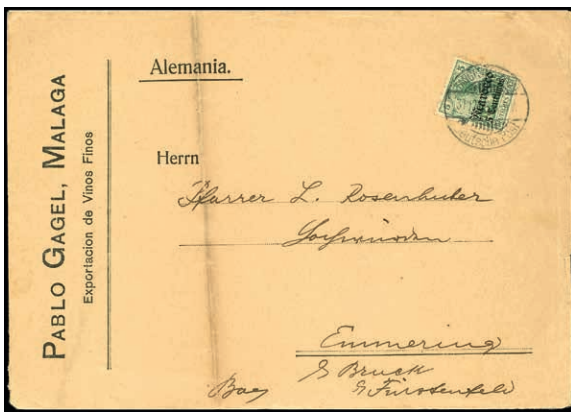 PABLO GAGEL, MALAGA
Exportacion de Vinos Finos
Alemania.
Herrn
Pfarrer L. Rosenhuber
Hochwürden
Emmering
Bruck
Fürstenfeld